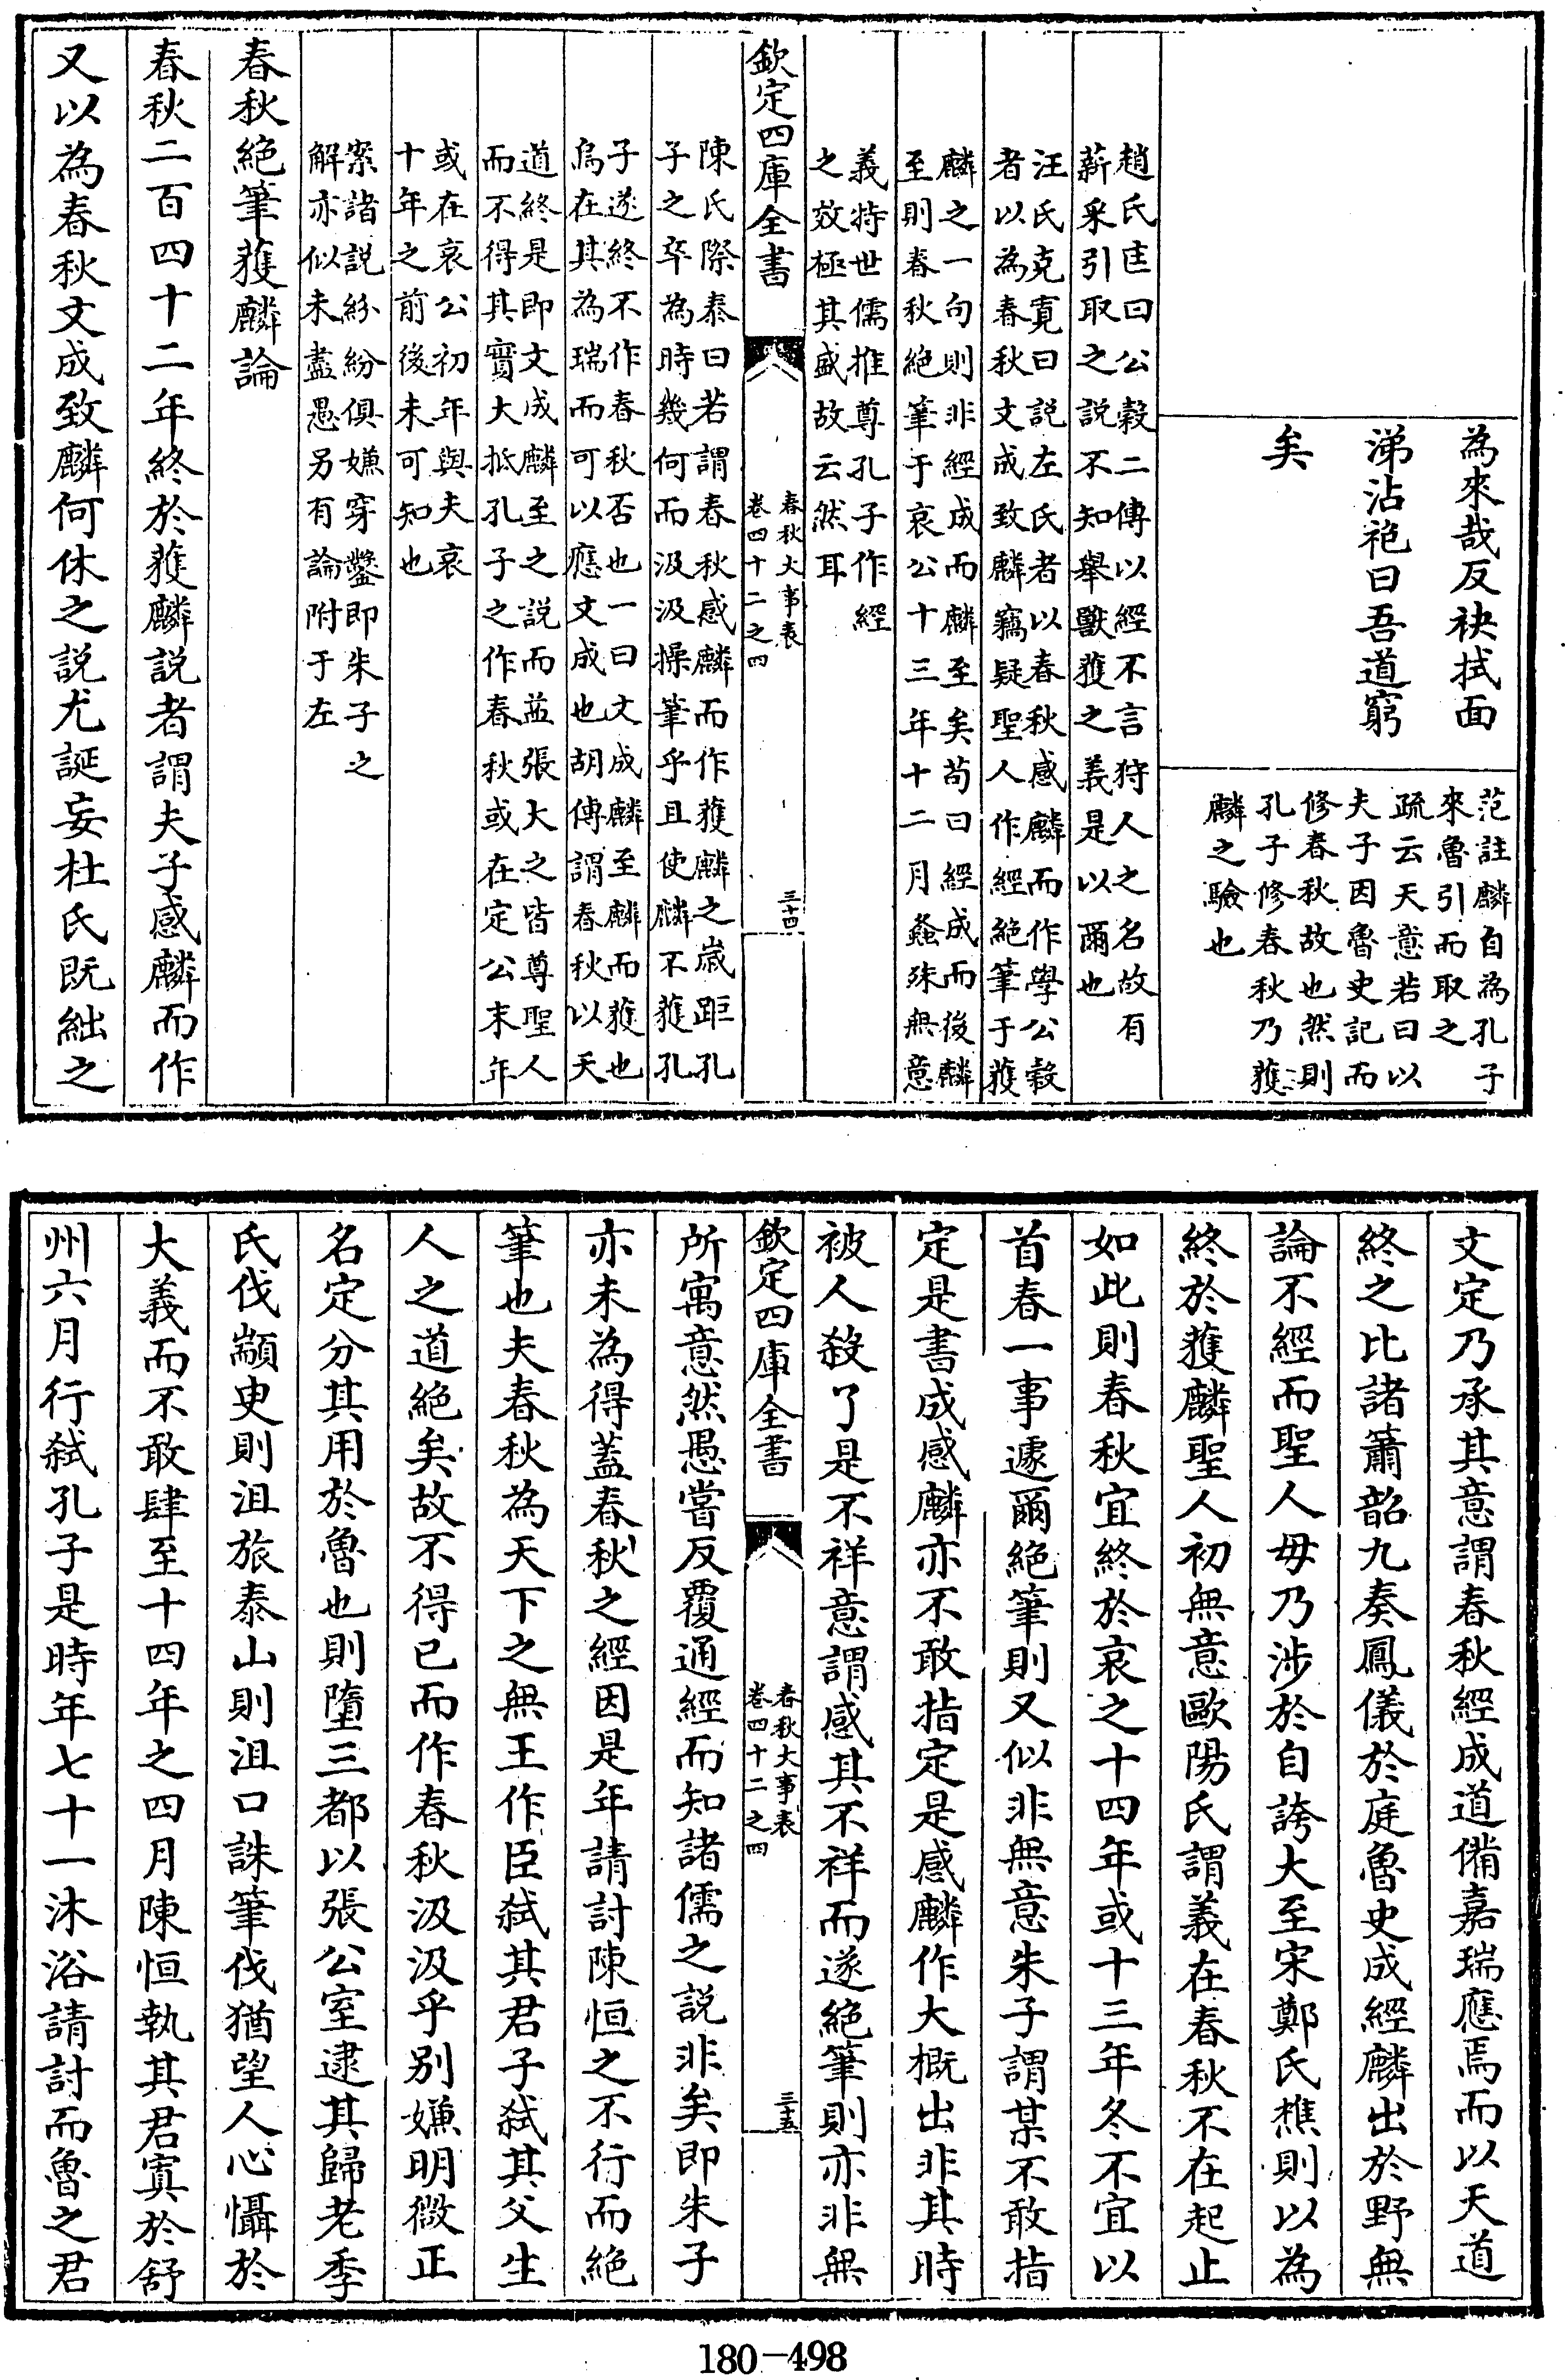 為來哉反袂拭面
涕沾袍曰吾道窮
矣
范註麟自為孔子
來魯引而取之
疏云天意若曰以
夫子因魯史記而
修春秋故也然則
孔子修春秋乃獲
麟之驗也
趙氏匡曰公穀二傳以經不言狩人之名故有
薪采引取之説不知舉獸獲之義是以爾也
汪氏克寛曰説左氏者以春秋感麟而作學公穀
者以為春秋文成致麟竊疑聖人作經絶筆于獲
麟之一句則非經成而麟至矣苟曰經成而後麟
至則春秋絶筆于哀公十三年十二月螽殊無意
義特世儒推尊孔子作經
之效極其盛故云然耳
欽定四庫全書
春秋大事表
卷四十二之四
三十四
陳氏際泰曰若謂春秋感麟而作獲麟之歲距孔
子之卒為時幾何而汲汲操筆乎且使麟不獲孔
子遂終不作春秋否也一曰文成麟至麟而獲也
烏在其為瑞而可以應文成也胡傳謂春秋以天
道終是即文成麟至之説而益張大之皆尊聖人
而不得其實大抵孔子之作春秋或在定公末年
或在哀公初年與夫哀
十年之前後未可知也
案諸説紛紛俱嫌穿鑿即朱子之
解亦似未盡愚另有論附于左
春秋絶筆獲麟論
春秋二百四十二年終於獲麟説者謂夫子感麟而作
又以為春秋文成致麟何休之説尤誕妄杜氏既絀之
文定乃承其意謂春秋經成道備嘉瑞應焉而以天道
終之比諸簫韶九奏鳳儀於庭魯史成經麟出於野無
論不經而聖人毋乃涉於自誇大至宋鄭氏樵則以為
終於獲麟聖人初無意歐陽氏謂義在春秋不在起止
如此則春秋宜終於哀之十四年或十三年冬不宜以
首春一事遽爾絶筆則又似非無意朱子謂某不敢指
定是書成感麟亦不敢指定是感麟作大概出非其時
被人殺了是不祥意謂感其不祥而遂絶筆則亦非無
欽定四庫全書
春秋大事表
卷四十二之四
三十五
所寓意然愚嘗反覆通經而知諸儒之説非矣即朱子
亦未為得蓋春秋之經因是年請討陳恒之不行而絶
筆也夫春秋為天下之無王作臣弑其君子弑其父生
人之道絶矣故不得已而作春秋汲汲乎别嫌明微正
名定分其用於魯也則墮三都以張公室逮其歸老季
氏伐顓臾則沮旅泰山則沮口誅筆伐猶望人心懾於
大義而不敢肆至十四年之四月陳恒執其君寘於舒
州六月行弑孔子是時年七十一沐浴請討而魯之君
180-498